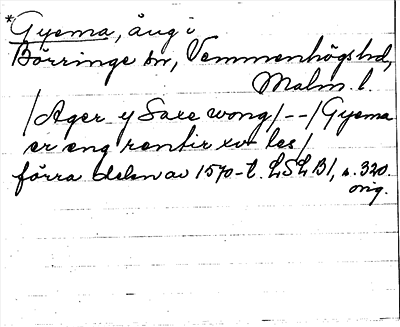 *Gyema, äng i
Börringe sn, Vemmenhögs hd,
Malm. l.
/Ager y Saxe wong/--/Gyema
er eng rentir xv les/
förra delen av 1570-t. LSLB1, s. 320.
orig.